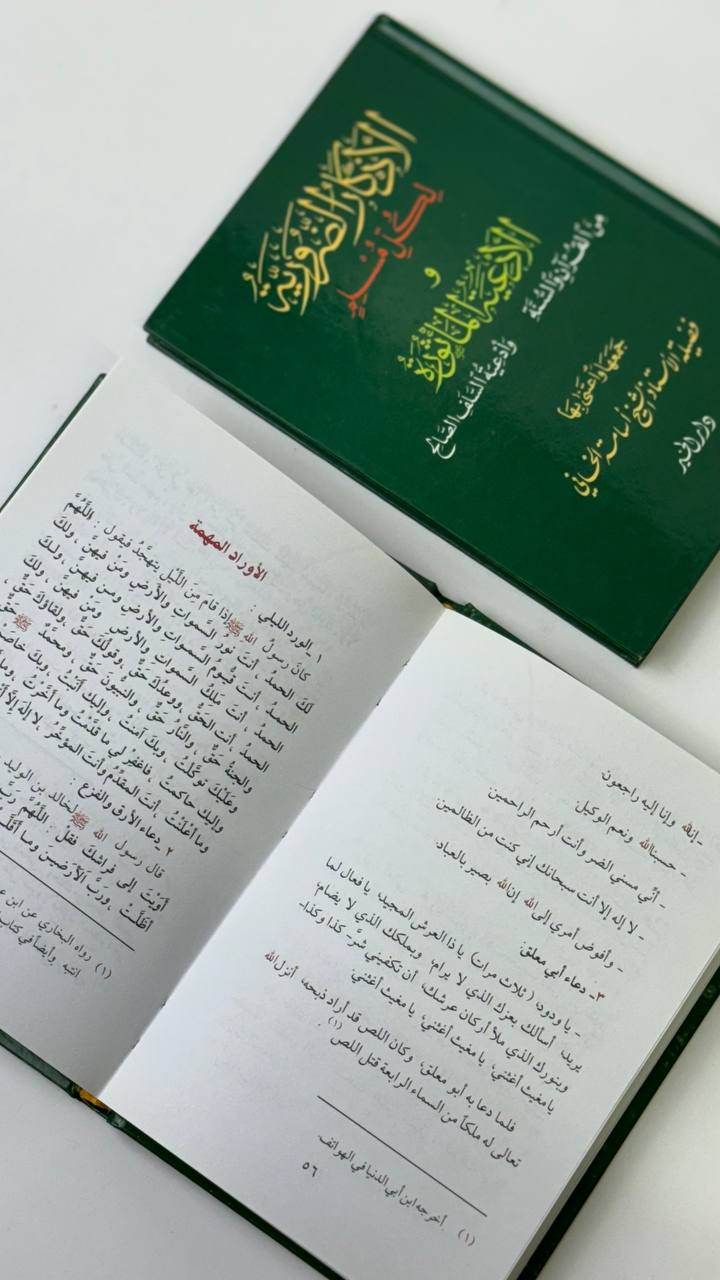 الأذكار الضرورية
لكل مسلم
و
الأدعية المأثورة
من القرآن والسنة
وأدعية السلف الصالح
جمعها واعتنى بها
فضيلة الأستاذ الشيخ أسامة الخاني
دار الخير
- إنا لله وإنا إليه راجعون
- حسبنا الله ونعم الوكيل.
- أني مسني الضر وأنت أرحم الراحمين
- لا إله إلا أنت سبحانك إني كنت من الظالمين
- وأفوض أمري إلى الله إن الله بصير بالعباد.
٣- دعاء أبي معلق:
- يا ودود، (ثلاث مرات) يا ذا العرش المجيد، يا فعال لما
يريد، أسألك بعزك الذي لا يرام، وبملكك الذي لا يضام،
وبنورك الذي ملأ أركان عرشك، أن تكفيني شرّ.. كذا وكذا..
يا مغيث أغثني، يا مغيث أغثني، يا مغيث أغثني.
فلما دعا به أبو معلق، وكان اللص قد أراد ذبحه، أنزل الله
تعالى له ملكاً من السماء الرابعة قتل اللص (١).
(١) أخرجه ابن أبي الدنيا في الهواتف.
٥٦
الأوراد المهمة
١. الورد الليلي:
كانَ رسولُ الله ﷺ إذا قامَ مِنَ اللَّيلِ يتهجَّدُ فيقول: اللَّهُمَّ
لكَ الحمدُ، أنتَ نورُ السَّمواتِ والأرضِ ومَنْ فيهنَّ، ولكَ
الحمدُ، أنتَ قيُّومُ السَّمواتِ والأرضِ ومن فيهنَّ، ولكَ
الحمدُ، أنتَ مَلِكُ السَّمواتِ والأرضِ ومَن فيهنَّ، ولكَ
الحمدُ، أنت الحقُّ، ووعدُكَ حقٌّ، وقولُكَ حقٌّ، ولقاؤكَ حقٌّ،
والجنةُ حَقٌّ، والنَّارُ حَقٌّ، والنبيُّونَ حَقٌّ، ومحمدٌ ﷺ حقٌّ
وعَلَيْكَ توكَّلتُ، وبكَ آمنتُ، وإليكَ أنَبْتُ، وبكَ خاصَمتُ
وإليكَ حاكمتُ، فاغفر لي ما قدَّمْتُ وما أخَّرْتُ، وما
وما أعْلَنْتُ، أنتَ المقدِّمُ وأنتَ المؤخِّرُ، لا إلهَ إلَّا
٢. دعاء الأرق والفزع:
قال رسول الله ﷺ لخالد بن الوليد
أوَيْتَ إلى فراشِكَ فقلْ: اللَّهُمَّ رَبَّ
أظَلَّتْ، ورَبَّ الأرَضينَ وما أقَلَّتْ
(١) رواه البخاري عن ابن
انتبه. وأيضاً في كتاب